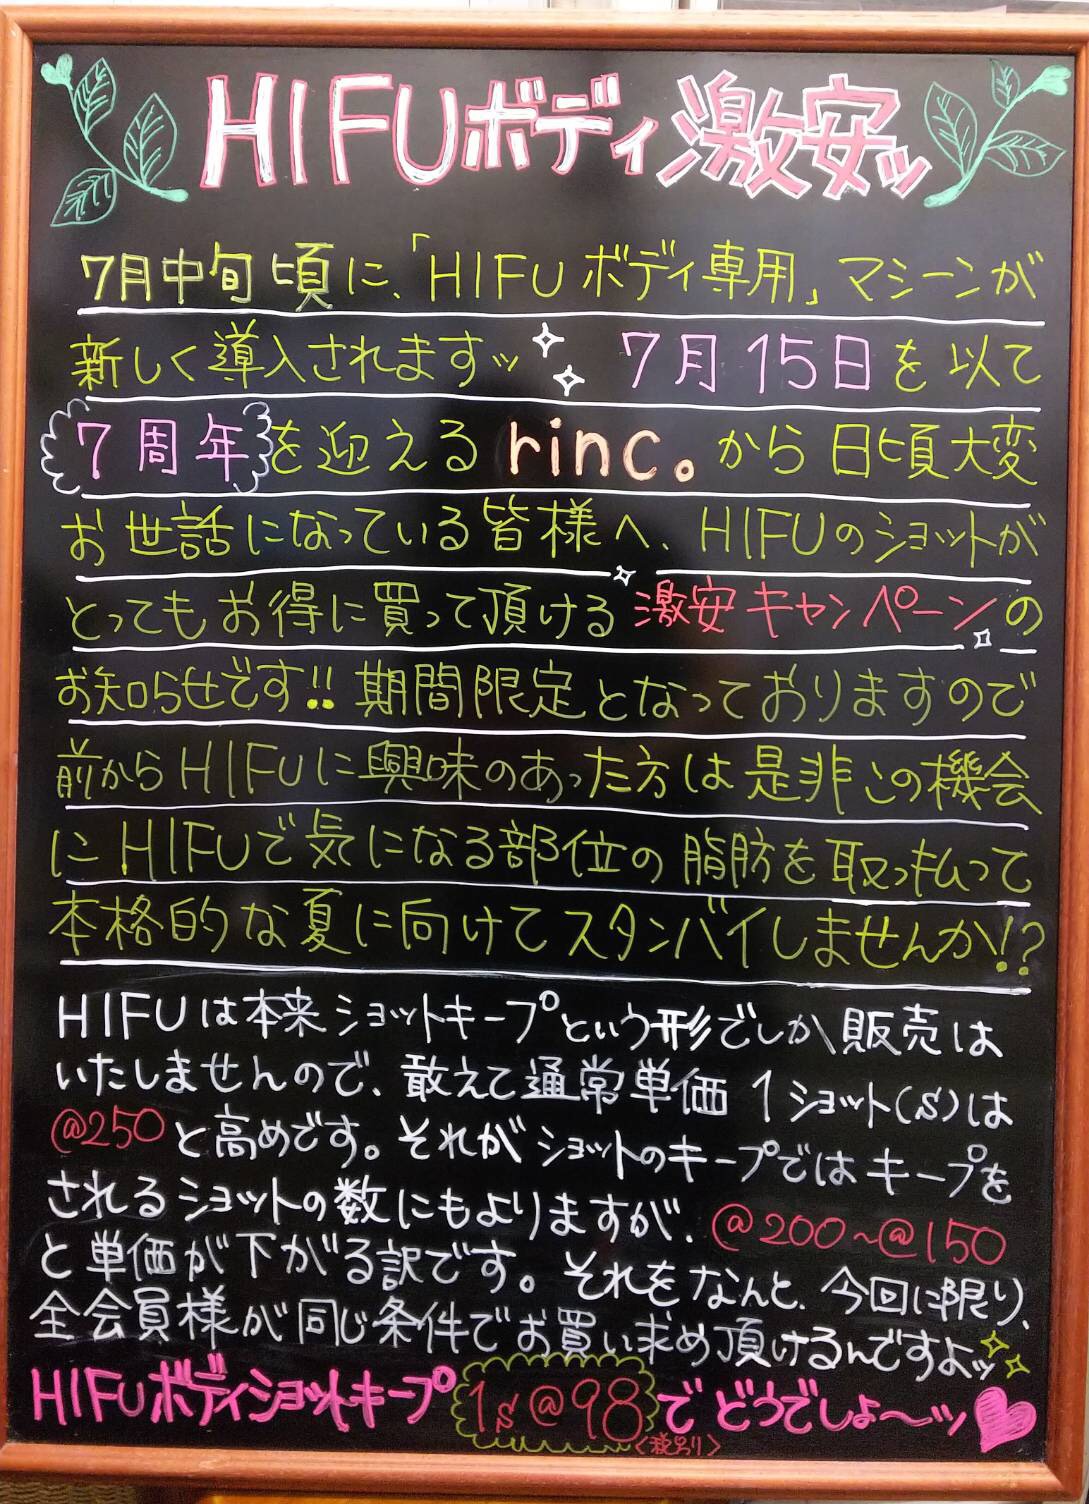 HIFUボディ激安ッ
7月中旬頃に、「HIFUボディ専用」マシーンが
新しく導入されますッ 7月15日を以て
7周年を迎えるrinc.から日頃大変
お世話になっている皆様へ、HIFUのショットが
とってもお得に買って頂ける激安キャンペーンの
お知らせです!!期間限定となっておりますので
前からHIFUに興味のあった方は是非この機会
にHIFUで気になる部位の脂肪を取っ払って
本格的な夏に向けてスタンバイしませんか!?
HIFUは本来ショットキープという形でしか販売は
いたしませんので、敢えて通常単価1ショット(s)は
@250と高めです。それがショットのキープではキープを
されるショットの数にもよりますが、@200~@150
と単価が下がる訳です。それをなんと、今回に限り、
全会員様が同じ条件でお買い求め頂けるんですよッ
HIFUボディショットキープ1s@98でどうでしょ〜ッ
<税別>